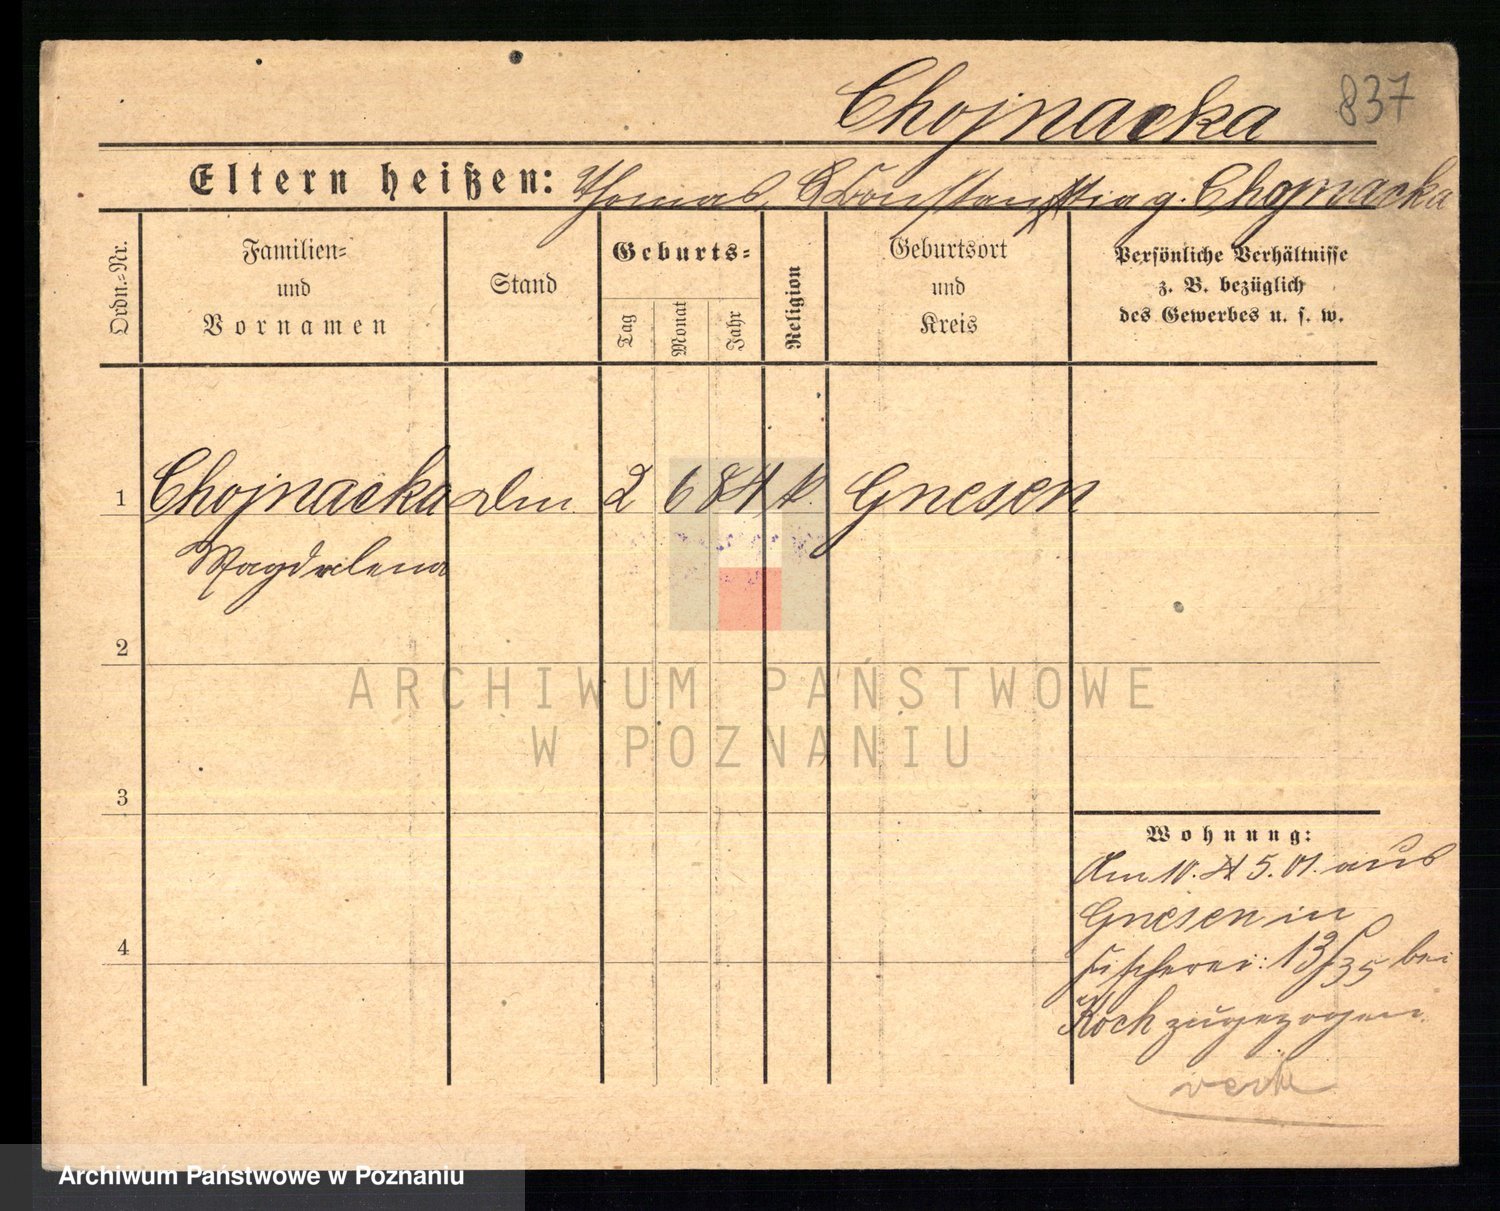 Chojnacka 837
Eltern heißen: Thomas, Constantia g. Chojnacka
Ordn.-Nr.
Familien-
und
Vornamen
Stand
Geburts-
Tag
Monat
Jahr
Religion
Geburtsort
und
Kreis
Persönliche Verhältnisse
z. B. bezüglich
des Gewerbes u. s. w.
1 Chojnacka 2 6 84 k. Gnesen
Magdalena
2
3
4
Wohnung:
Am 10. 5. 01. aus
Gnesen in
Fischerei: 13/35 bei
Koch zugezogen.
ARCHIWUM PAŃSTWOWE
W POZNANIU
Archiwum Państwowe w Poznaniu